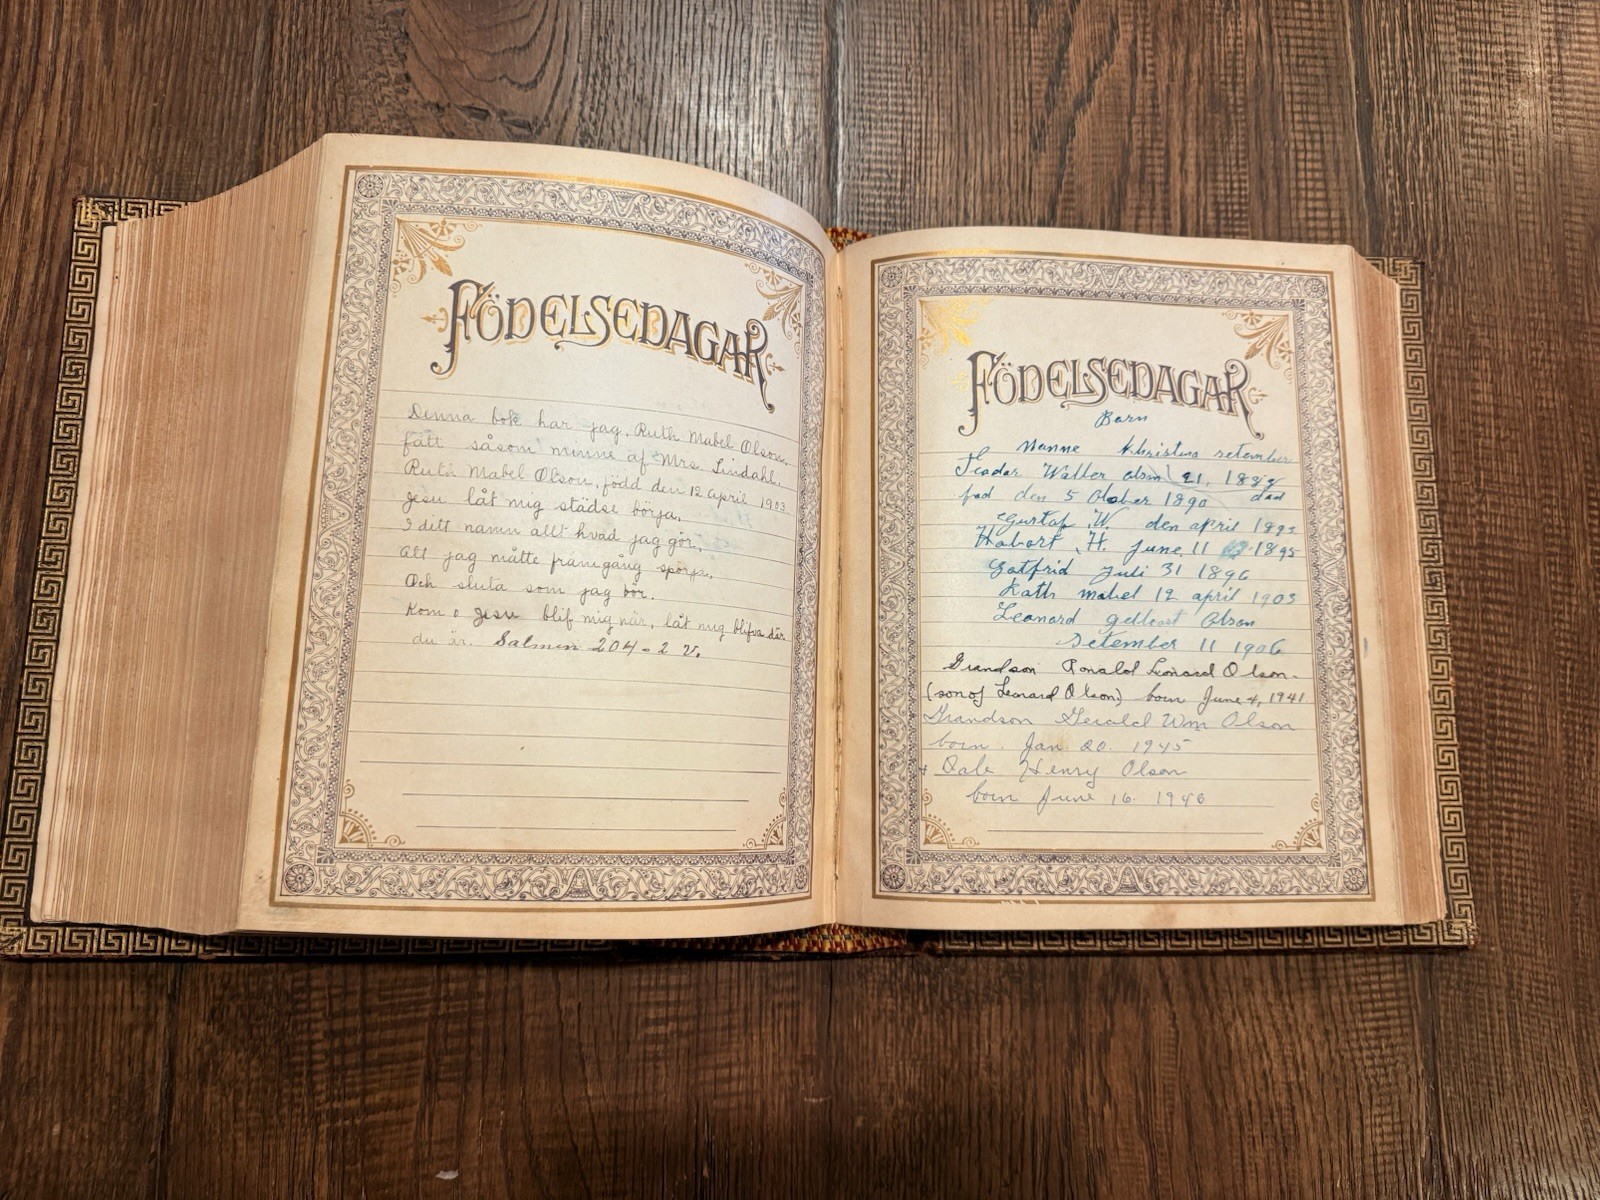 FÖDELSEDAGAR
Denna bok har jag, Ruth Mabel Olson,
fått såsom minne af Mrs. Lindahl.
Ruth Mabel Olson, född den 12 april 1903
Jesu låt mig städse börja,
I ditt namn allt hvad jag gör,
Att jag måtte framgång spörja,
Och sluta som jag bör.
Kom o Jesu blif mig när, låt mig blifva där
du är. Salmen 204-2 V.
FÖDELSEDAGAR
Barn
Nanne Khristina setember
Walter 21, 188
fad den 5 Otober 1890 dad
Gustaf W. den april 1893
Habort H. June 11 1895
Gotfrid Juli 31 1896
Rath mabel 12 april 1903
Leonard Olson
Setember 11 1906
Grandson Ronald Leonard Olson.
(son of Leonard Olson) born June 4, 1941
Grandson Gerald Wm Olson
born. Jan 20. 1945
+ Dale Henry Olson
born June 16. 1946